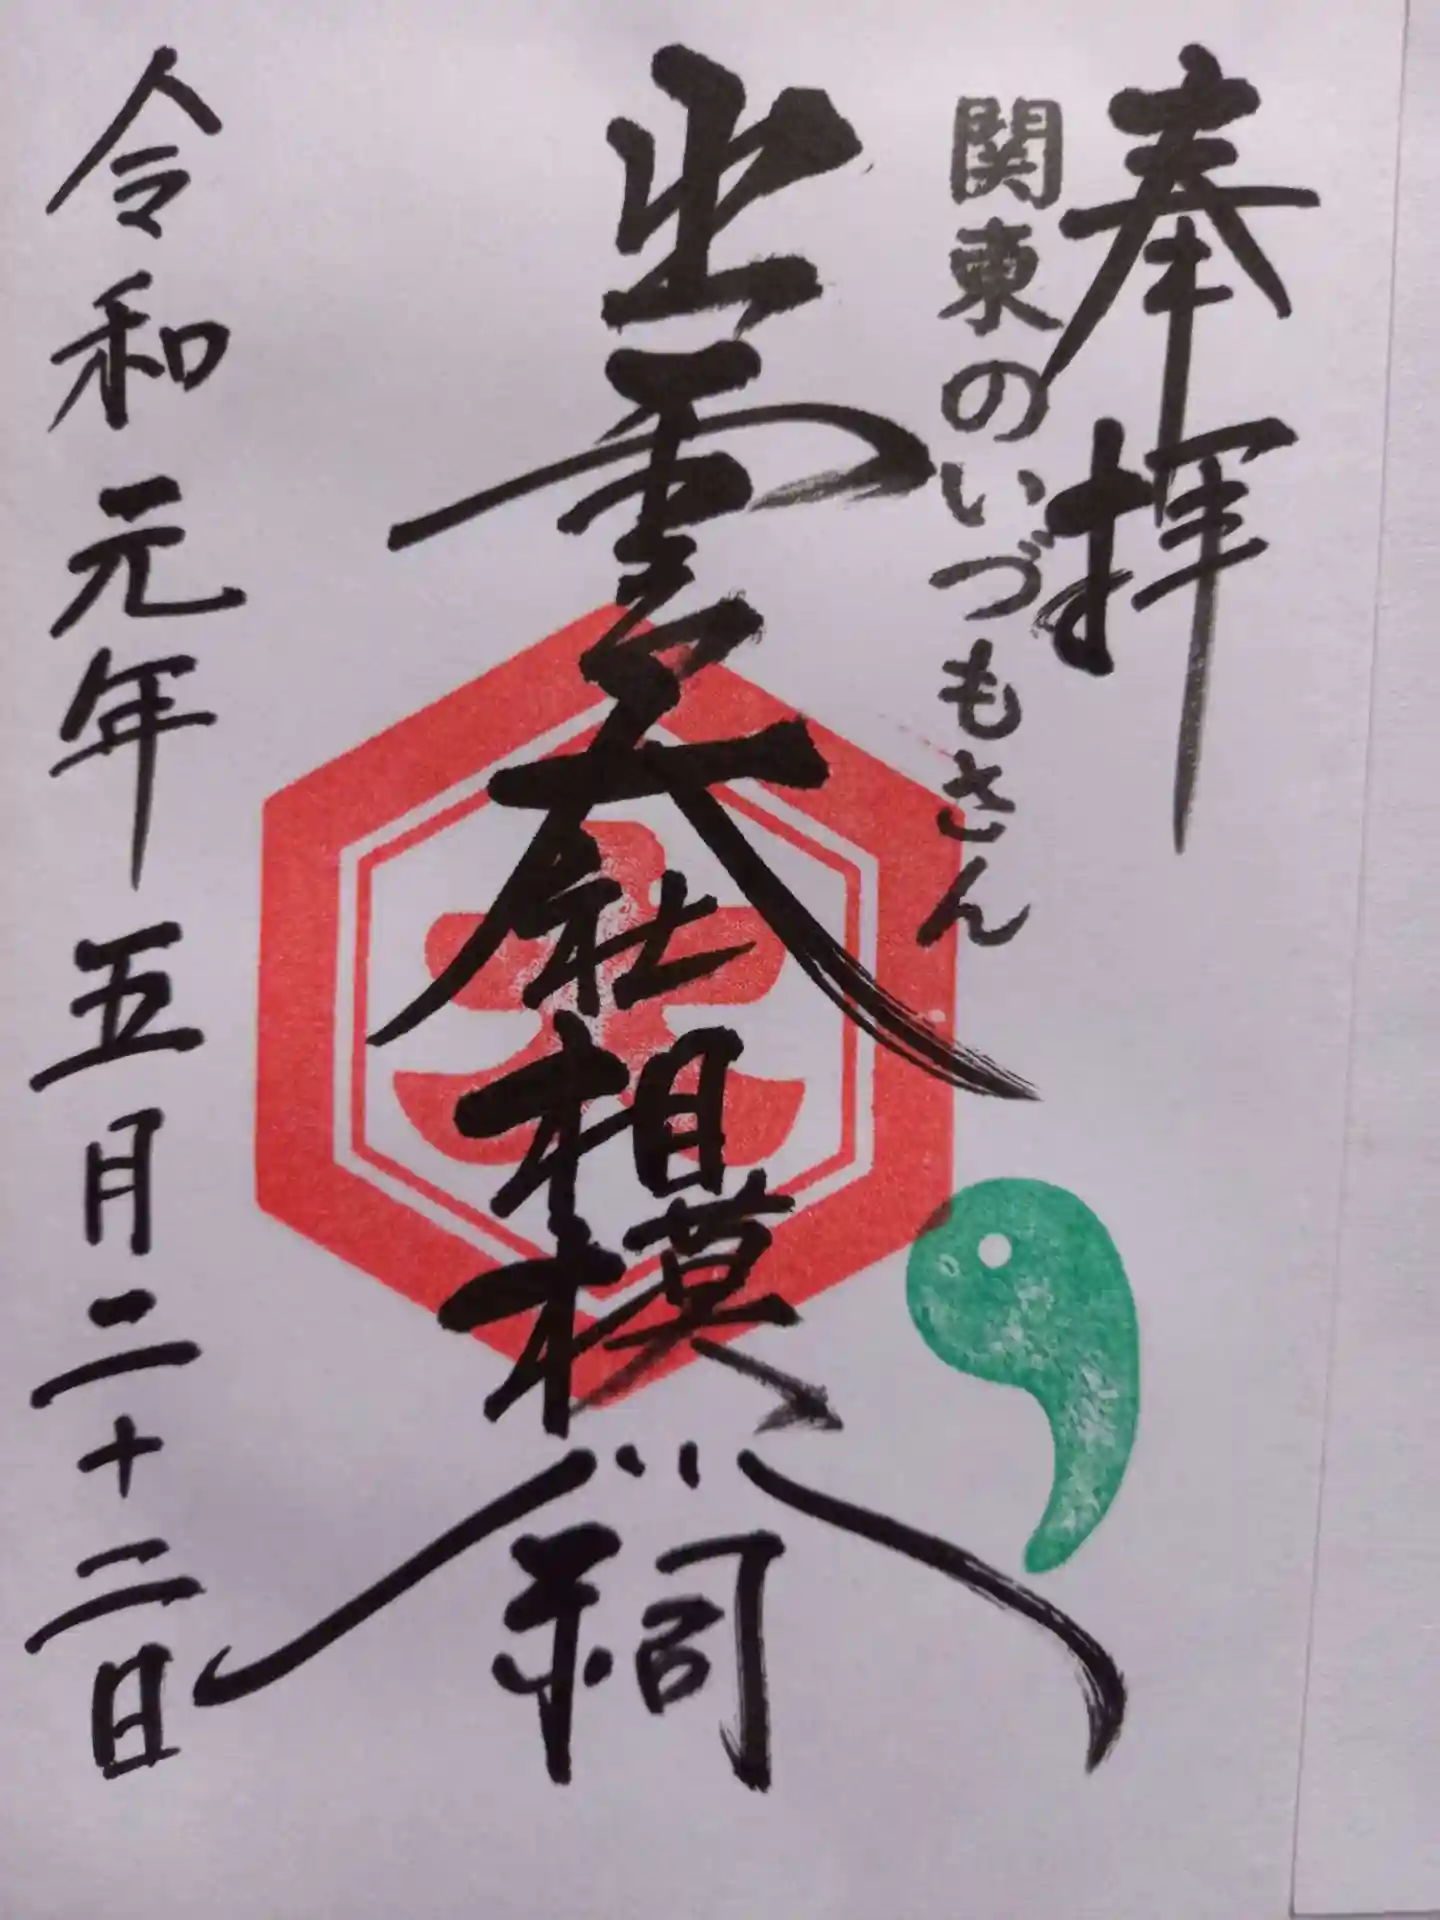 奉拝
関東のいづもさん
出雲大社相模分祠
令和元年五月二十二日
大